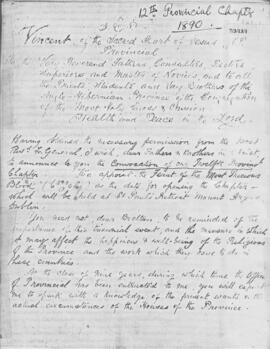 12th Provincial Chapter
1890.
J. X. P.
Vincent of the Sacred Heart of Jesus, C.P.
Provincial
To the Very Reverend Fathers Consultors, Rectors
Superiors and Master of Novices, and to all
the Priests, Students and Lay Brothers of the
Anglo-Hibernian Province of the Congregation
of the Most Holy Cross & Passion
Health and Peace in the Lord.
Having obtained the necessary permission from the most
Revd. Fr. General, I wish, dear Fathers & Brothers in Christ to
announce to you the Convocation of our Twelfth Provincial
Chapter. I appoint the Feast of the Most Precious
Blood (6th July) as the date for opening the Chapter
which will be held at St Paul's Retreat Mount Argus,
Dublin.
You need not dear Brethren, to be reminded of the
importance of this triennial event, and the measure in which
it may affect the happiness & well-being of the Religious
of the Province and the work which they have to do in
these countries.
At the close of nine years, during which time the Office
of Provincial has been entrusted to me, you will expect
me to speak with a knowledge of the present wants & the
actual circumstances of the Houses of the Province.